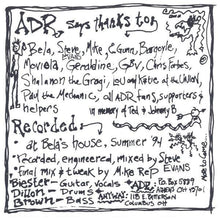 ADR says thanks to:
Bela, Steve Evans, Mike, CGunn, Burgoyle,
Moviola, Geraldine, GBV, Chris Forbes,
Shalanon the Gragi, Lou and Katie at the
Paul the Mechanic, all ADR fans, supporters &
helpers
in memory of Ted & Johnny B
Recorded
at Bela's house, Summer 94
recorded, engineered, mixed by Steve
Final mix & tweak by Mike Rep EVANS
Biester- Guitar, Vocals
Dillon- Drums
Brown- Bass
ADR P.O. Box
Athens OH 45701
ANYWAY: 1118 E.
Columbus OH